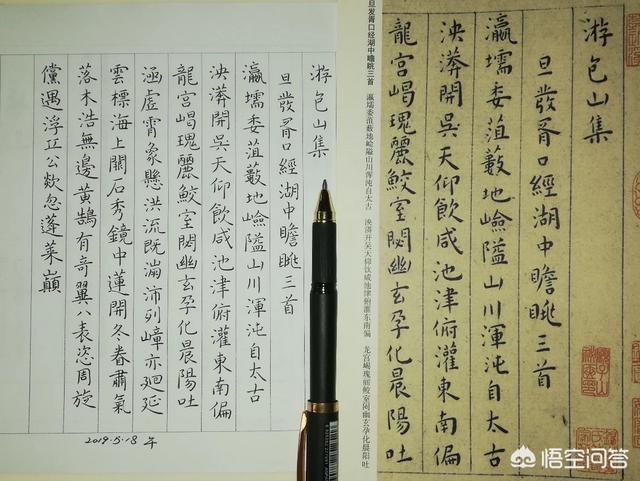 游包山集
旦發胥口經湖中瞻眺三首
瀛壖委菹藪地嶮隘山川渾沌自太古
泱漭開吳天仰飲咸池津俯灌東南偏
龍宮嵑瑰麗鮫室閟幽玄孕化晨陽吐
旦发胥口经湖中瞻眺三首 瀛壖委菹薮地崄隘山川浑沌自太古 泱漭开吴天仰饮咸池津俯灌东南偏 龙宫嵑瑰丽鲛室閟幽玄孕化晨阳吐
游包山集
旦發胥口經湖中瞻眺三首
瀛壖委菹藪地嶮隘山川渾沌自太古
泱漭開吳天仰飲咸池津俯灌東南偏
龍宮嵑瑰麗鮫室閟幽玄孕化晨陽吐
涵虛霄象懸洪流既瀰沛列嶂亦廻延
雲標海上關石秀鏡中蓮開冬眷肅氣
落木浩無邊黃鵠有奇翼八表恣周旋
儻遇浮丘公欻忽蓬萊巔
2019.5.18 年
悟空问答